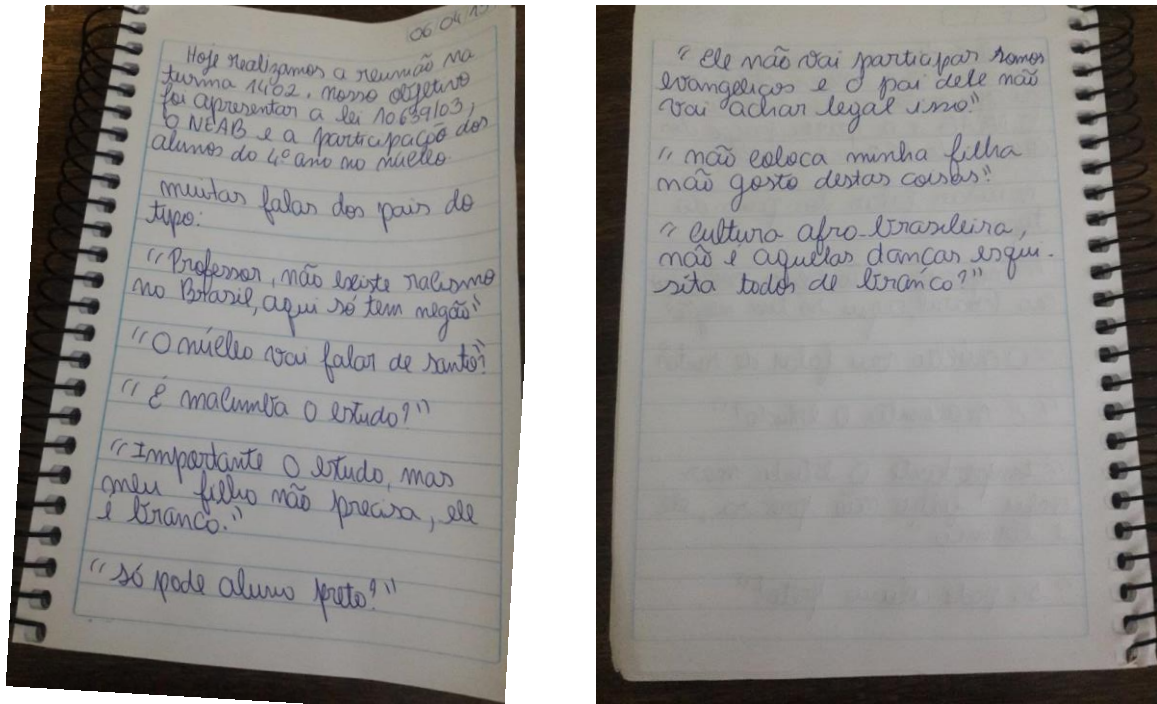 06 04
Hoje realizamos a reunião na
turma 1402. nosso objetivo
foi apresentar a lei 10639/03,
o NEAB e a participação dos
alunos do 4º ano no núcleo.
muitas falas dos pais do
tipo:
"Professor, não existe racismo
no Brasil, aqui só tem negão"
"O núcleo vai falar de santo?"
"É macumba o estudo?"
"Importante o estudo, mas
meu filho não precisa, ele
é branco."
"só pode aluno preto?"
"Ele não vai participar somos
evangélicos e o pai dele não
vai achar legal isso."
"não coloca minha filha
não gosto destas coisas!"
"cultura afro-brasileira,
não é aquelas danças esqui-
sita todos de branco?"